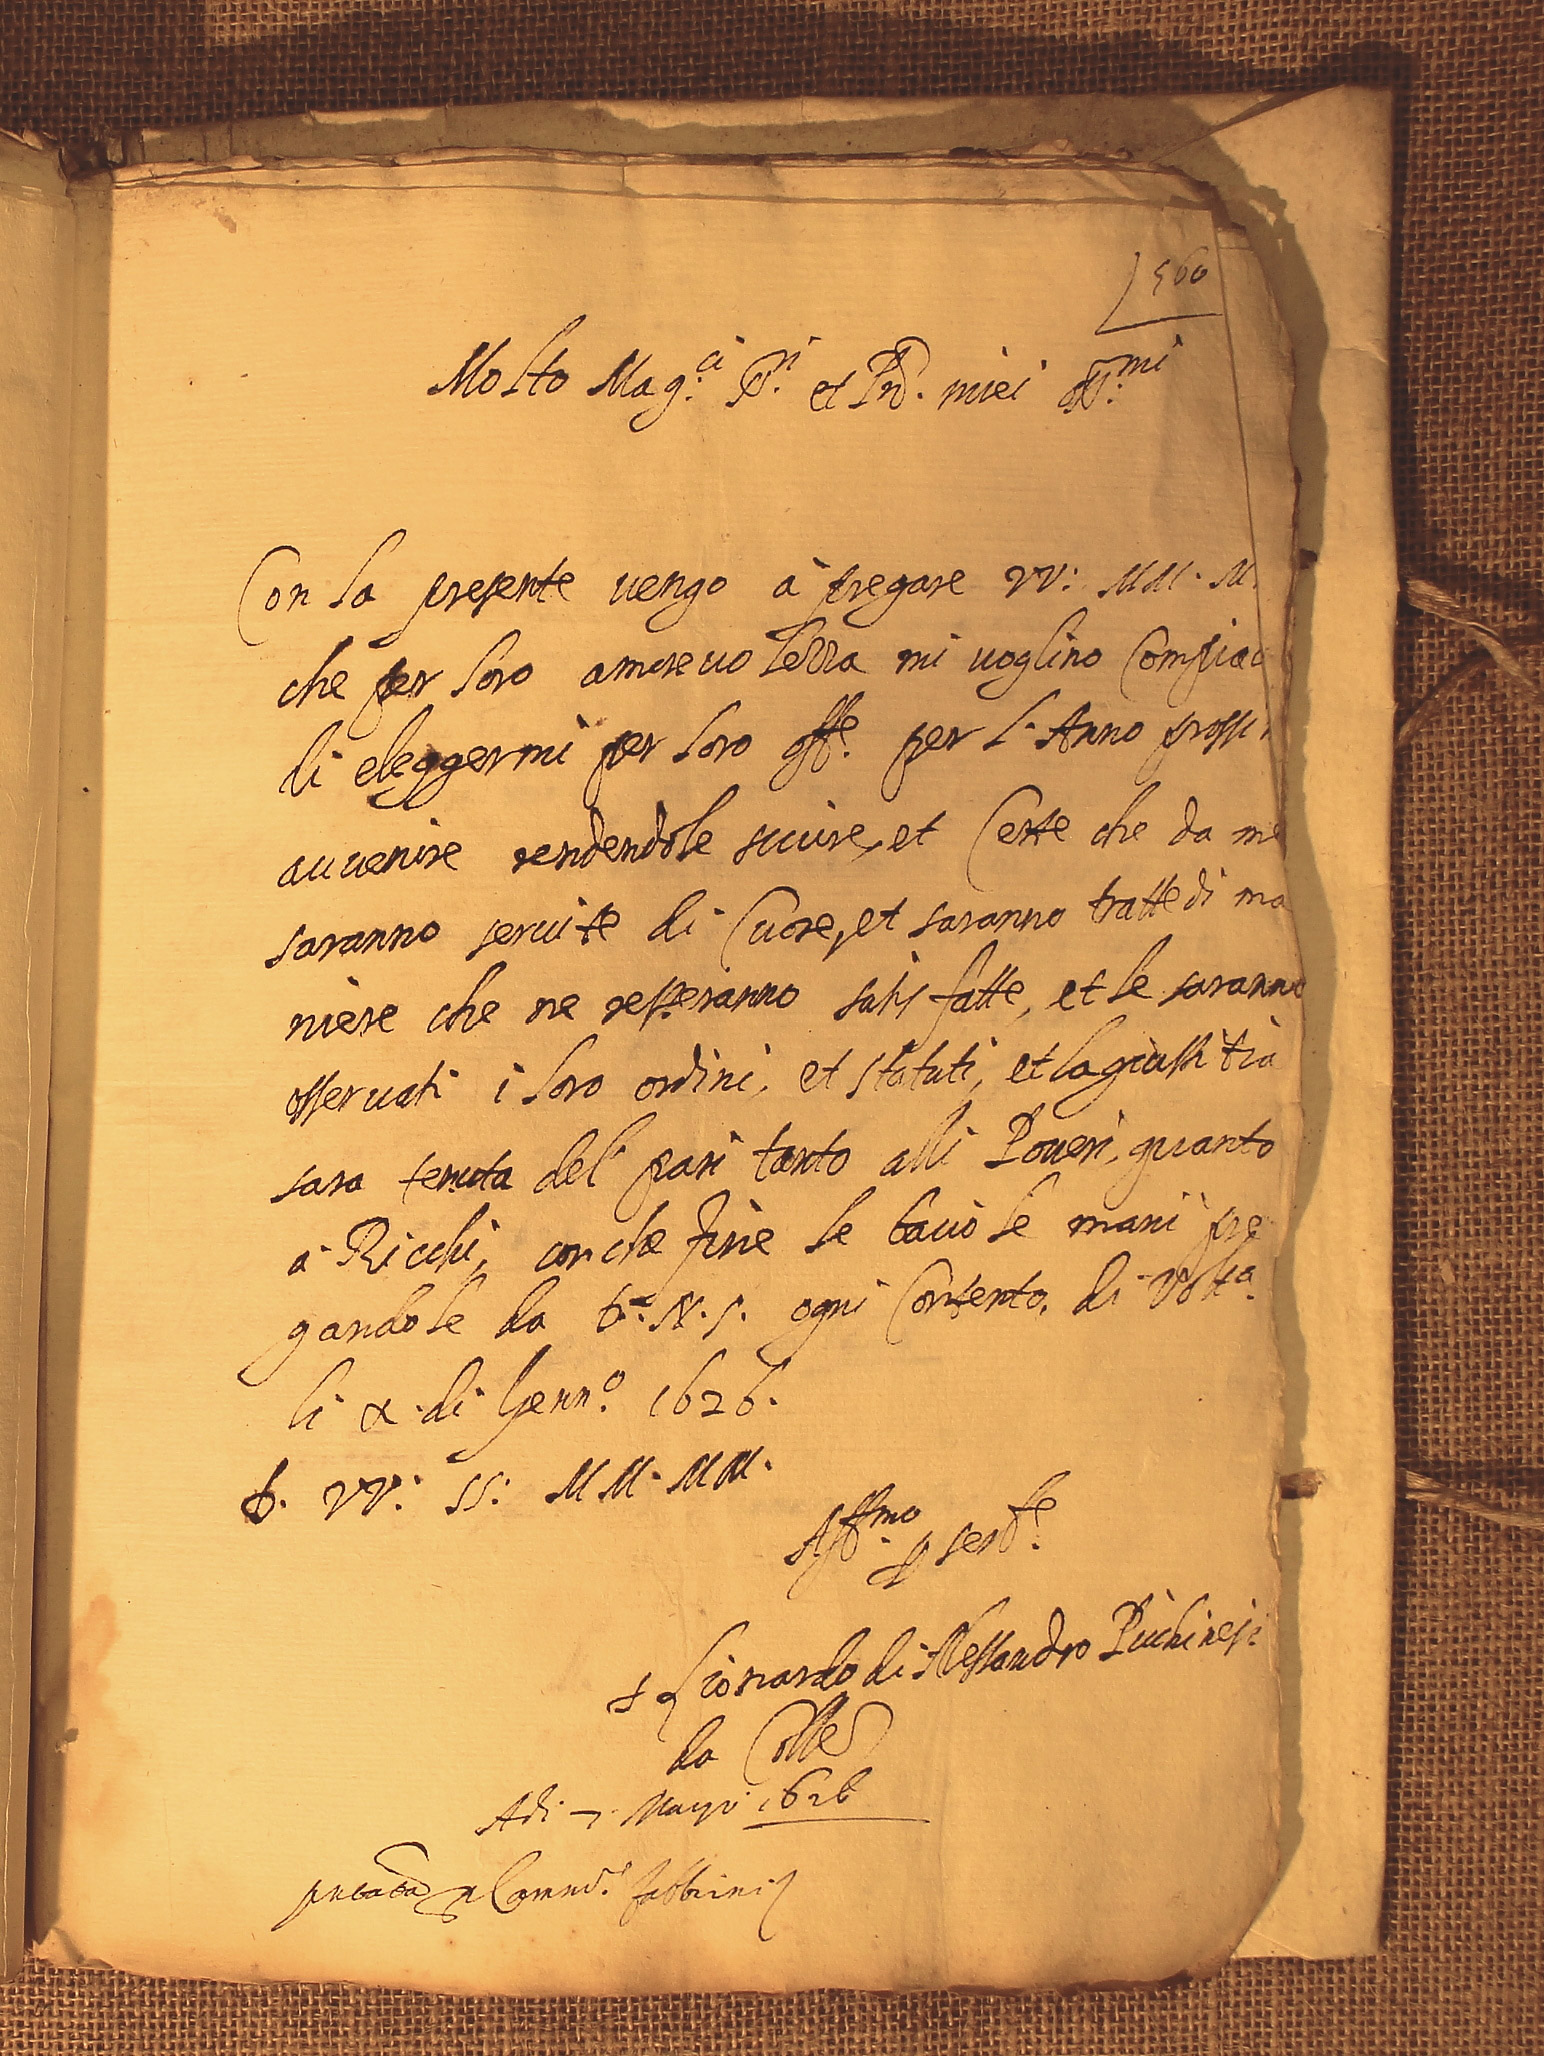 560
Molto Mag.ci et miei
Con la presente uengo à pregare VV: MM. M.
che per loro amoreuolezza mi uoglino Compiac
di eleggermi per loro off.e per l'Anno prossi
auuenire rendendole sicure, et Certe che da me
saranno seruite di Cuore, et saranno tratte di ma
niere che ne resteranno satisfatte, et le saranno
osseruati i loro ordini, et statuti, et la giustitia
sara tenuta del pari tanto alli Poueri, quanto
a Ricchi, con che fine le bacio le mani pre
gandole da N.S. ogni Contento. di Volt.a
li X di Genn.o 1626.
VV: SS: MM. MM.
Aff.mo ser.re
Lionardo di Alessandro Picchinesi
da Colle
Adi 1626